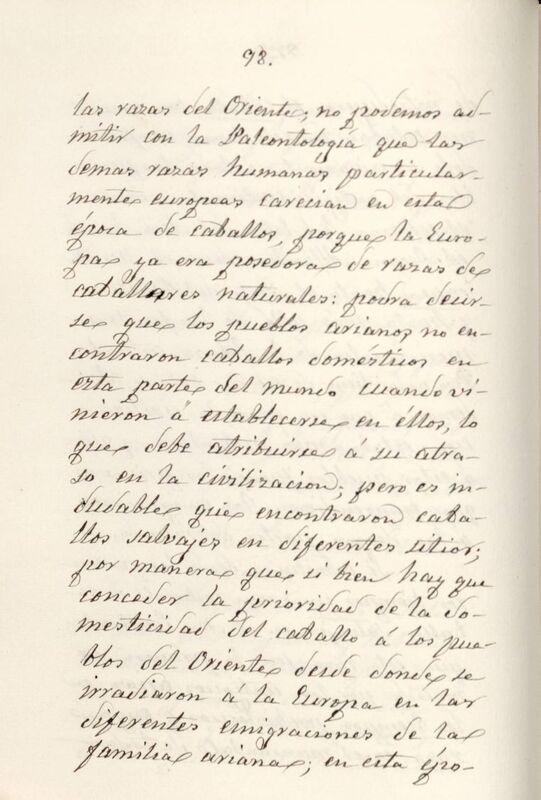 98.
las razas del Oriente; no podemos ad-
mitir con la Paleontología que las
demas razas humanas particular-
mente europeas carecian en esta
época de caballos, porque la Euro-
pa ya era posedora de razas de
caballares naturales: podra decir-
se que los pueblos arianos no en-
contraron caballos domésticos en
esta parte del mundo cuando vi-
nieron á establecerse en éllos, lo
que debe atribuirse á su atra-
so en la civilizacion; pero es in-
dudable que encontraron caba-
llos salvajes en diferentes sitios;
por manera que si bien hay que
conceder la prioridad de la do-
mesticidad del caballo á los pue-
blos del Oriente desde donde se
irradiaron á la Europa en las
diferentes emigraciones de la
familia ariana; en esta épo-